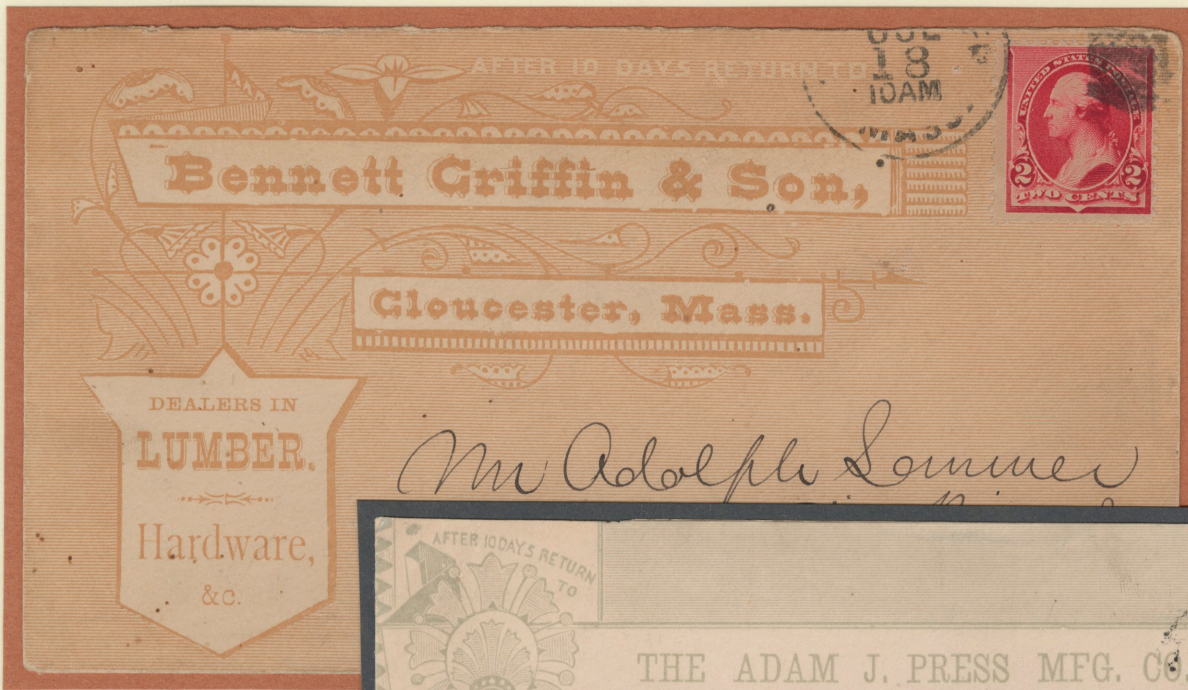 AFTER 10 DAYS RETURN TO
18
10AM
MASS.
UNITED STATES POSTAGE
2 2
TWO CENTS
Bennett Griffin & Son,
Gloucester, Mass.
DEALERS IN
LUMBER.
Hardware,
&c.
Mr Adolph Sommer
AFTER 10 DAYS RETURN
TO
THE ADAM J. PRESS MFG. CO.